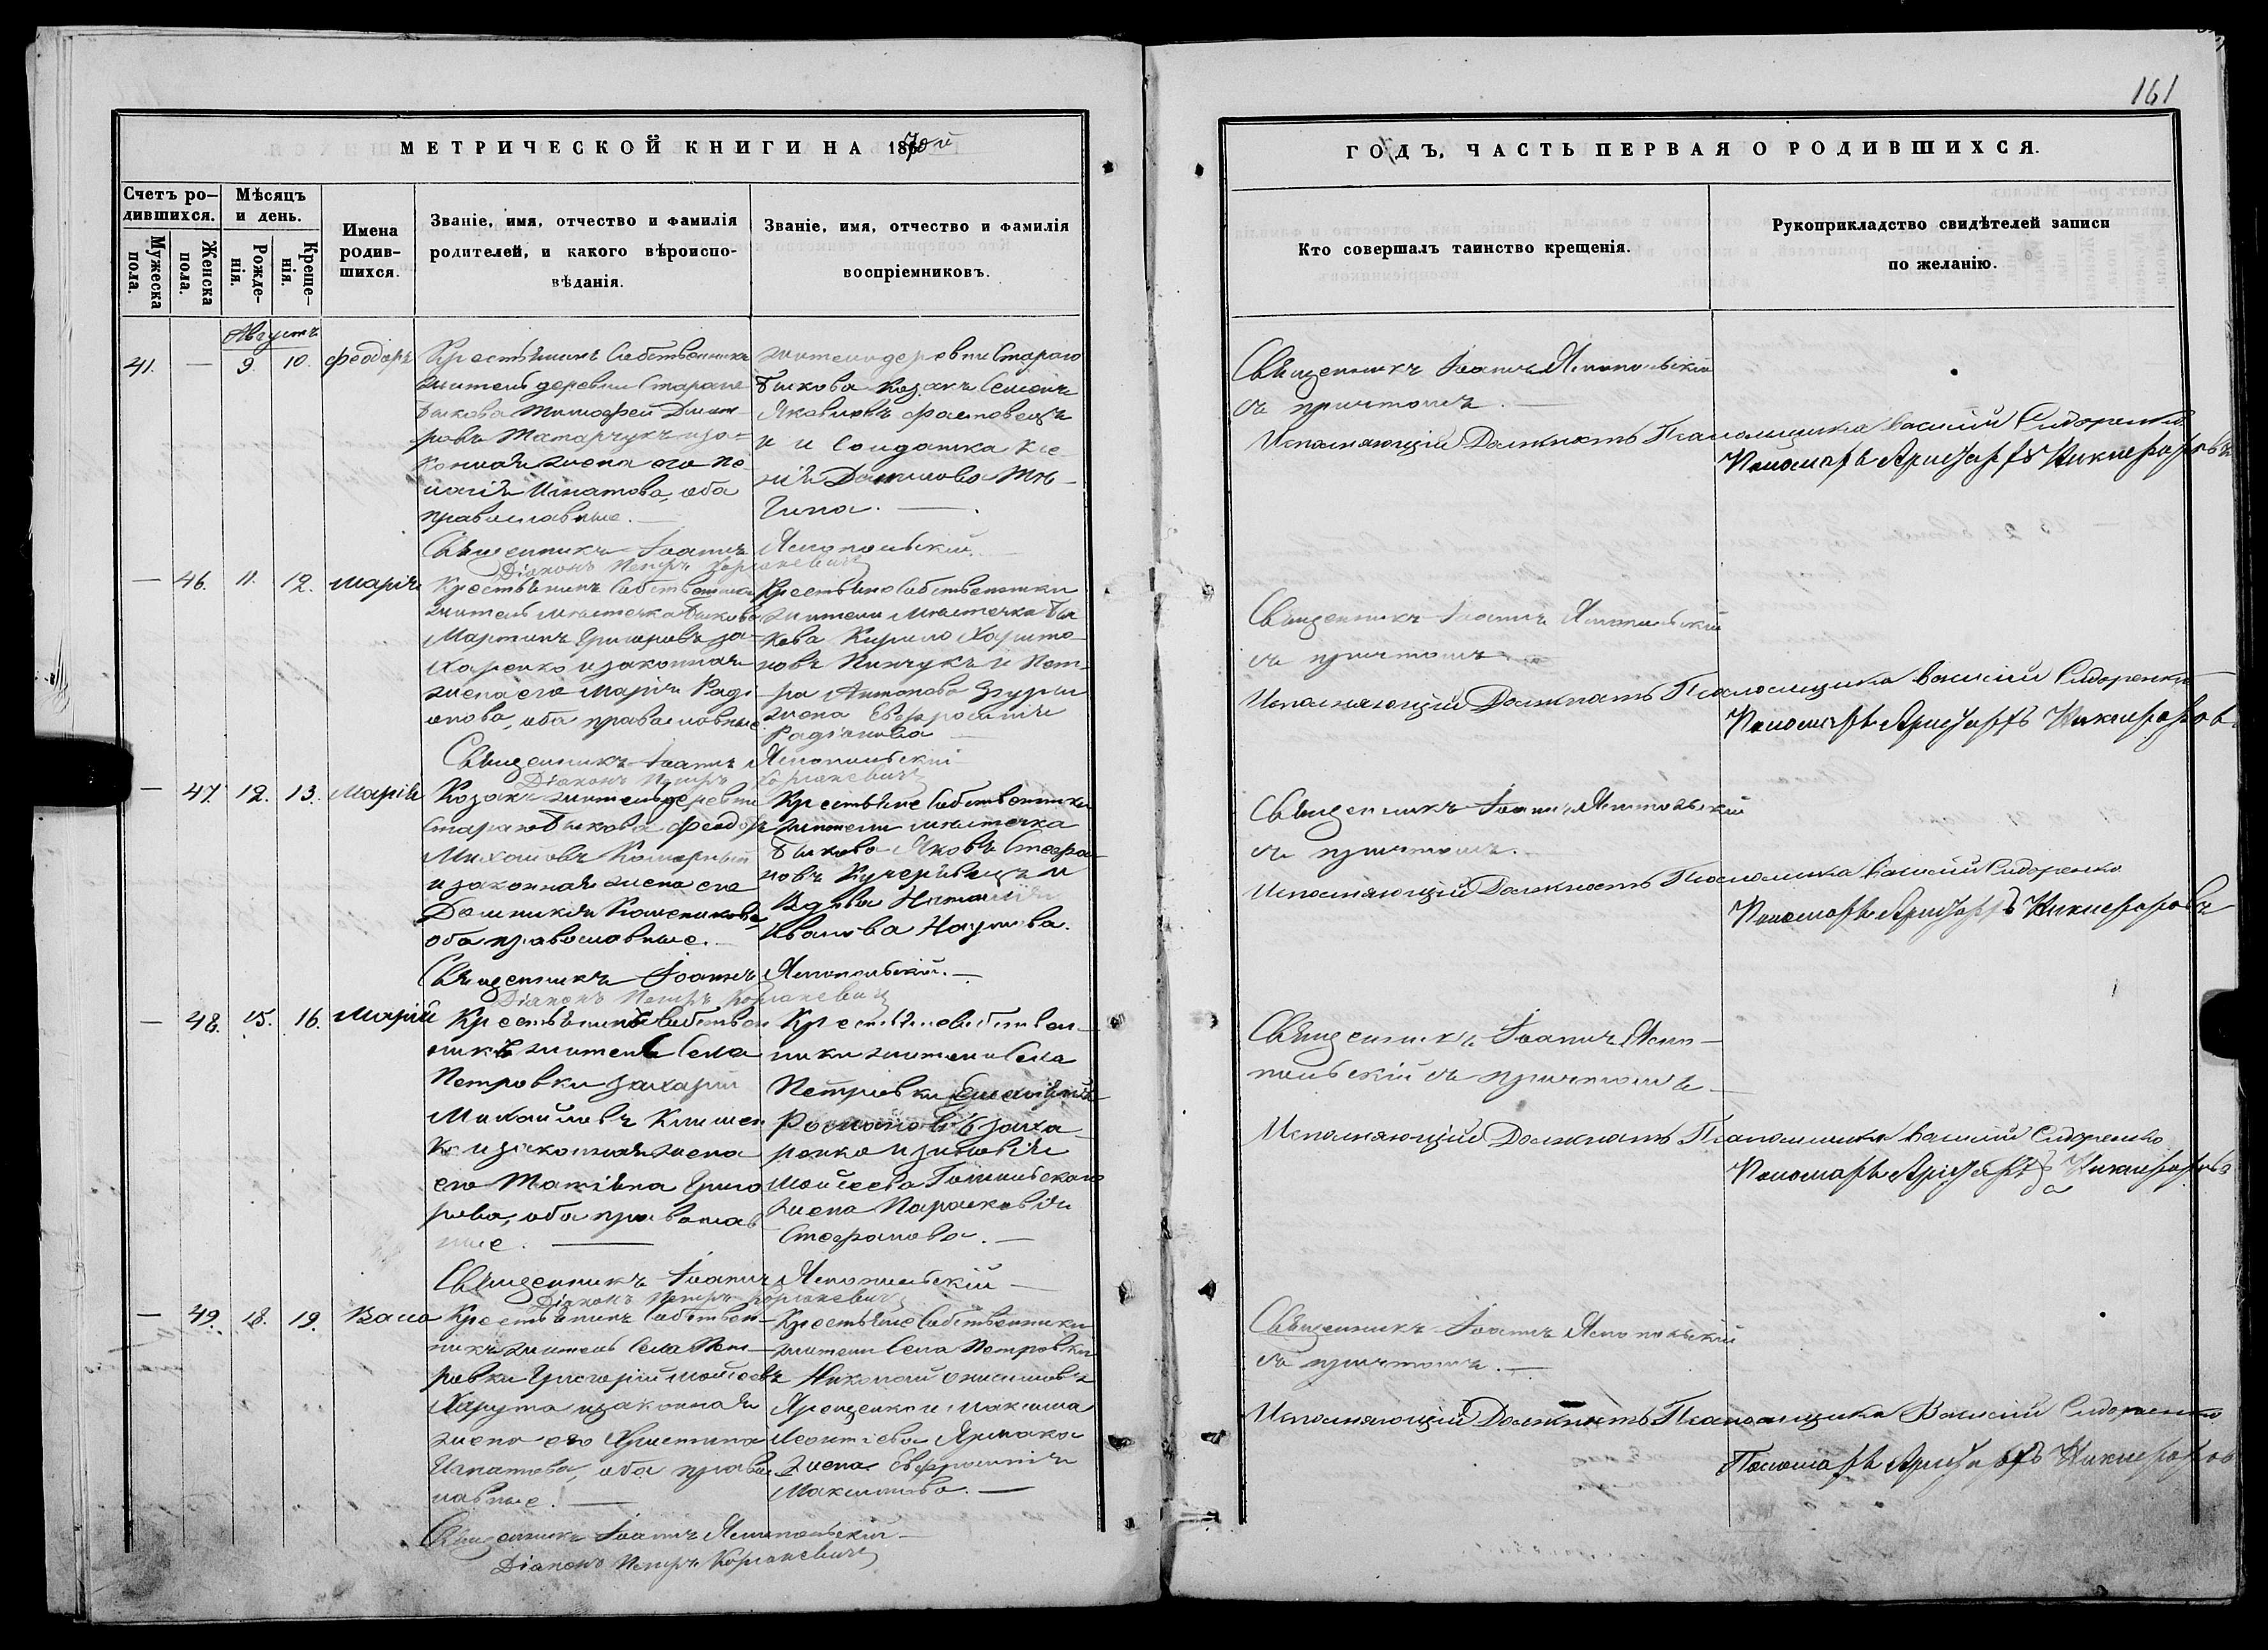 161
МЕТРИЧЕСКОЙ КНИГИ НА 1870й
ГОДЪ, ЧАСТЬ ПЕРВАЯ О РОДИВШИХСЯ.
Счетъ ро-
дившихся.
Мужеска
пола.
Женска
пола.
Мѣсяцъ
и день.
Рожде-
нія.
Креще-
нія.
Имена
родив-
шихся.
Званіе, имя, отчество и фамилія
родителей, и какого вѣроиспо-
вѣданія.
Званіе, имя, отчество и фамилія
воспріемниковъ.
Кто совершалъ таинство крещенія.
Рукоприкладство свидѣтелей записи
по желанію.
Августъ
41. — 9. 10. Феодоръ
Крестьянинъ Собственникъ
житель деревни Стараго
Быкова Тимофей Дмит-
ровъ Татарчукъ и за-
конная жена его Пе-
лагія Игнатова, оба
православные. —
жители деревни Стараго
Быкова Козакъ Семенъ
Яковлевъ Фастовецъ
и Солдатка Ксе-
нія Данилова
Священникъ Іоаннъ Яснопольскій
съ причтомъ. —
Исполняющій Должность Псаломщика Василій Сидоренко
Пономарь Аристархъ Никифоровъ
Священникъ Іоаннъ Яснопольскій. —
Діаконъ Петръ
— 46. 11. 12. Марія
Крестьянинъ Собственникъ
житель мѣстечка Быкова
Мартинъ Григоровъ За-
харенко и законная
жена его Марія Роді
онова, оба православные.
Крестьяне Собственники
жители мѣстечка Бы
кова Кирило Харито-
новъ Пинчукъ и Пет-
ра Антонова
жена Евфросинія
Радіонова —
Священникъ Іоаннъ Яснопольскій
съ причтомъ
Исполняющій Должность Псаломщика Василій Сидоренко
Пономарь Аристархъ Никифоровъ
Священникъ Іоаннъ Яснопольскій
Діаконъ Петръ
— 47. 12. 13. Марія
Козакъ житель деревни
Стараго Быкова Феодоръ
Михайловъ Комарный
и законная жена его
Домникія
оба православные.
Крестьяне Собственники
жители мѣстечка
Быкова Яковъ Стефа-
новъ и
Вдова Наталія
Иванова Наумова.
Священникъ Іоаннъ Яснопольскій
съ причтомъ.
Исполняющій Должность Псаломщика Василій Сидоренко
Пономарь Аристархъ Никифоровъ
Священникъ Іоаннъ Яснопольскій. —
Діаконъ Петръ
— 48. 15. 16. Марія
Крестьянинъ Собствен
никъ житель Села
Петровки Захарій
Михайловъ Климен
ко и законная жена
его Татіана Григо
рьева, оба православ
ные. —
Крестьяне Собствен-
ники жители Села
Петровки
Романовъ Заха-
ренко и
Моисеева
жена Параскевія
Стефанова. —
Священникъ Іоаннъ Ясно-
польскій съ причтомъ —
Исполняющій Должность Псаломщика Василій Сидоренко
Пономарь Аристархъ Никифоровъ
Священникъ Іоаннъ Яснопольскій —
Діаконъ Петръ
— 49. 18. 19. Васса
Крестьянинъ Собствен-
никъ житель Села Пет-
ровки Григорій Моисеевъ
Харута и законная
жена его Христина
Игнатова, оба право
лавные. —
Крестьяне Собственники
жители Села Петровки
Николай Онисимовъ
Ярещенко и Максима
Леонтіева Ярмака
жена Евфросинія
Максимова. —
Священникъ Іоаннъ Яснопольскій
съ причтомъ. —
Исполняющій Должность Псаломщика Василій Сидоренко
Пономарь Аристархъ Никифоровъ
Священникъ Іоаннъ Яснопольскій —
Діаконъ Петръ